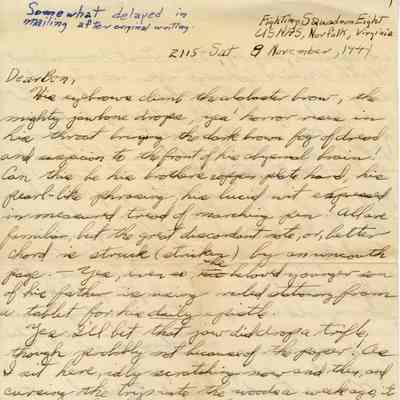 Somewhat delayed in
mailing after original writing.
Fighting Squadron Eight
USNAS, Norfolk, Virginia
2115 - Sat 8 November, 1941
Dear Bon,
His eyebrows climb the alabaster brow, the
mighty jawbone drops, yea horror rises in
his throat bringing the dark brown fog of dread
and suspicion to the front of his abysmal brain!
Can this be his brothers copper plate hand, his
pearl-like phrasing, his lucid wit expressed
in measured tread of marching pen! All are
familiar, but the great discordant note, or, better
chord is struck (stricken) by an uncouth
page. — Yea, even so, beloved younger son
of his father is using ruled stationery from
a tablet for his daily epistle.
Yea I'll bet that your dick drop a trifle,
though probably not because of the paper! As
I sit here, idly scratching now and then, and
cursing the trip into the woods a week ago, it